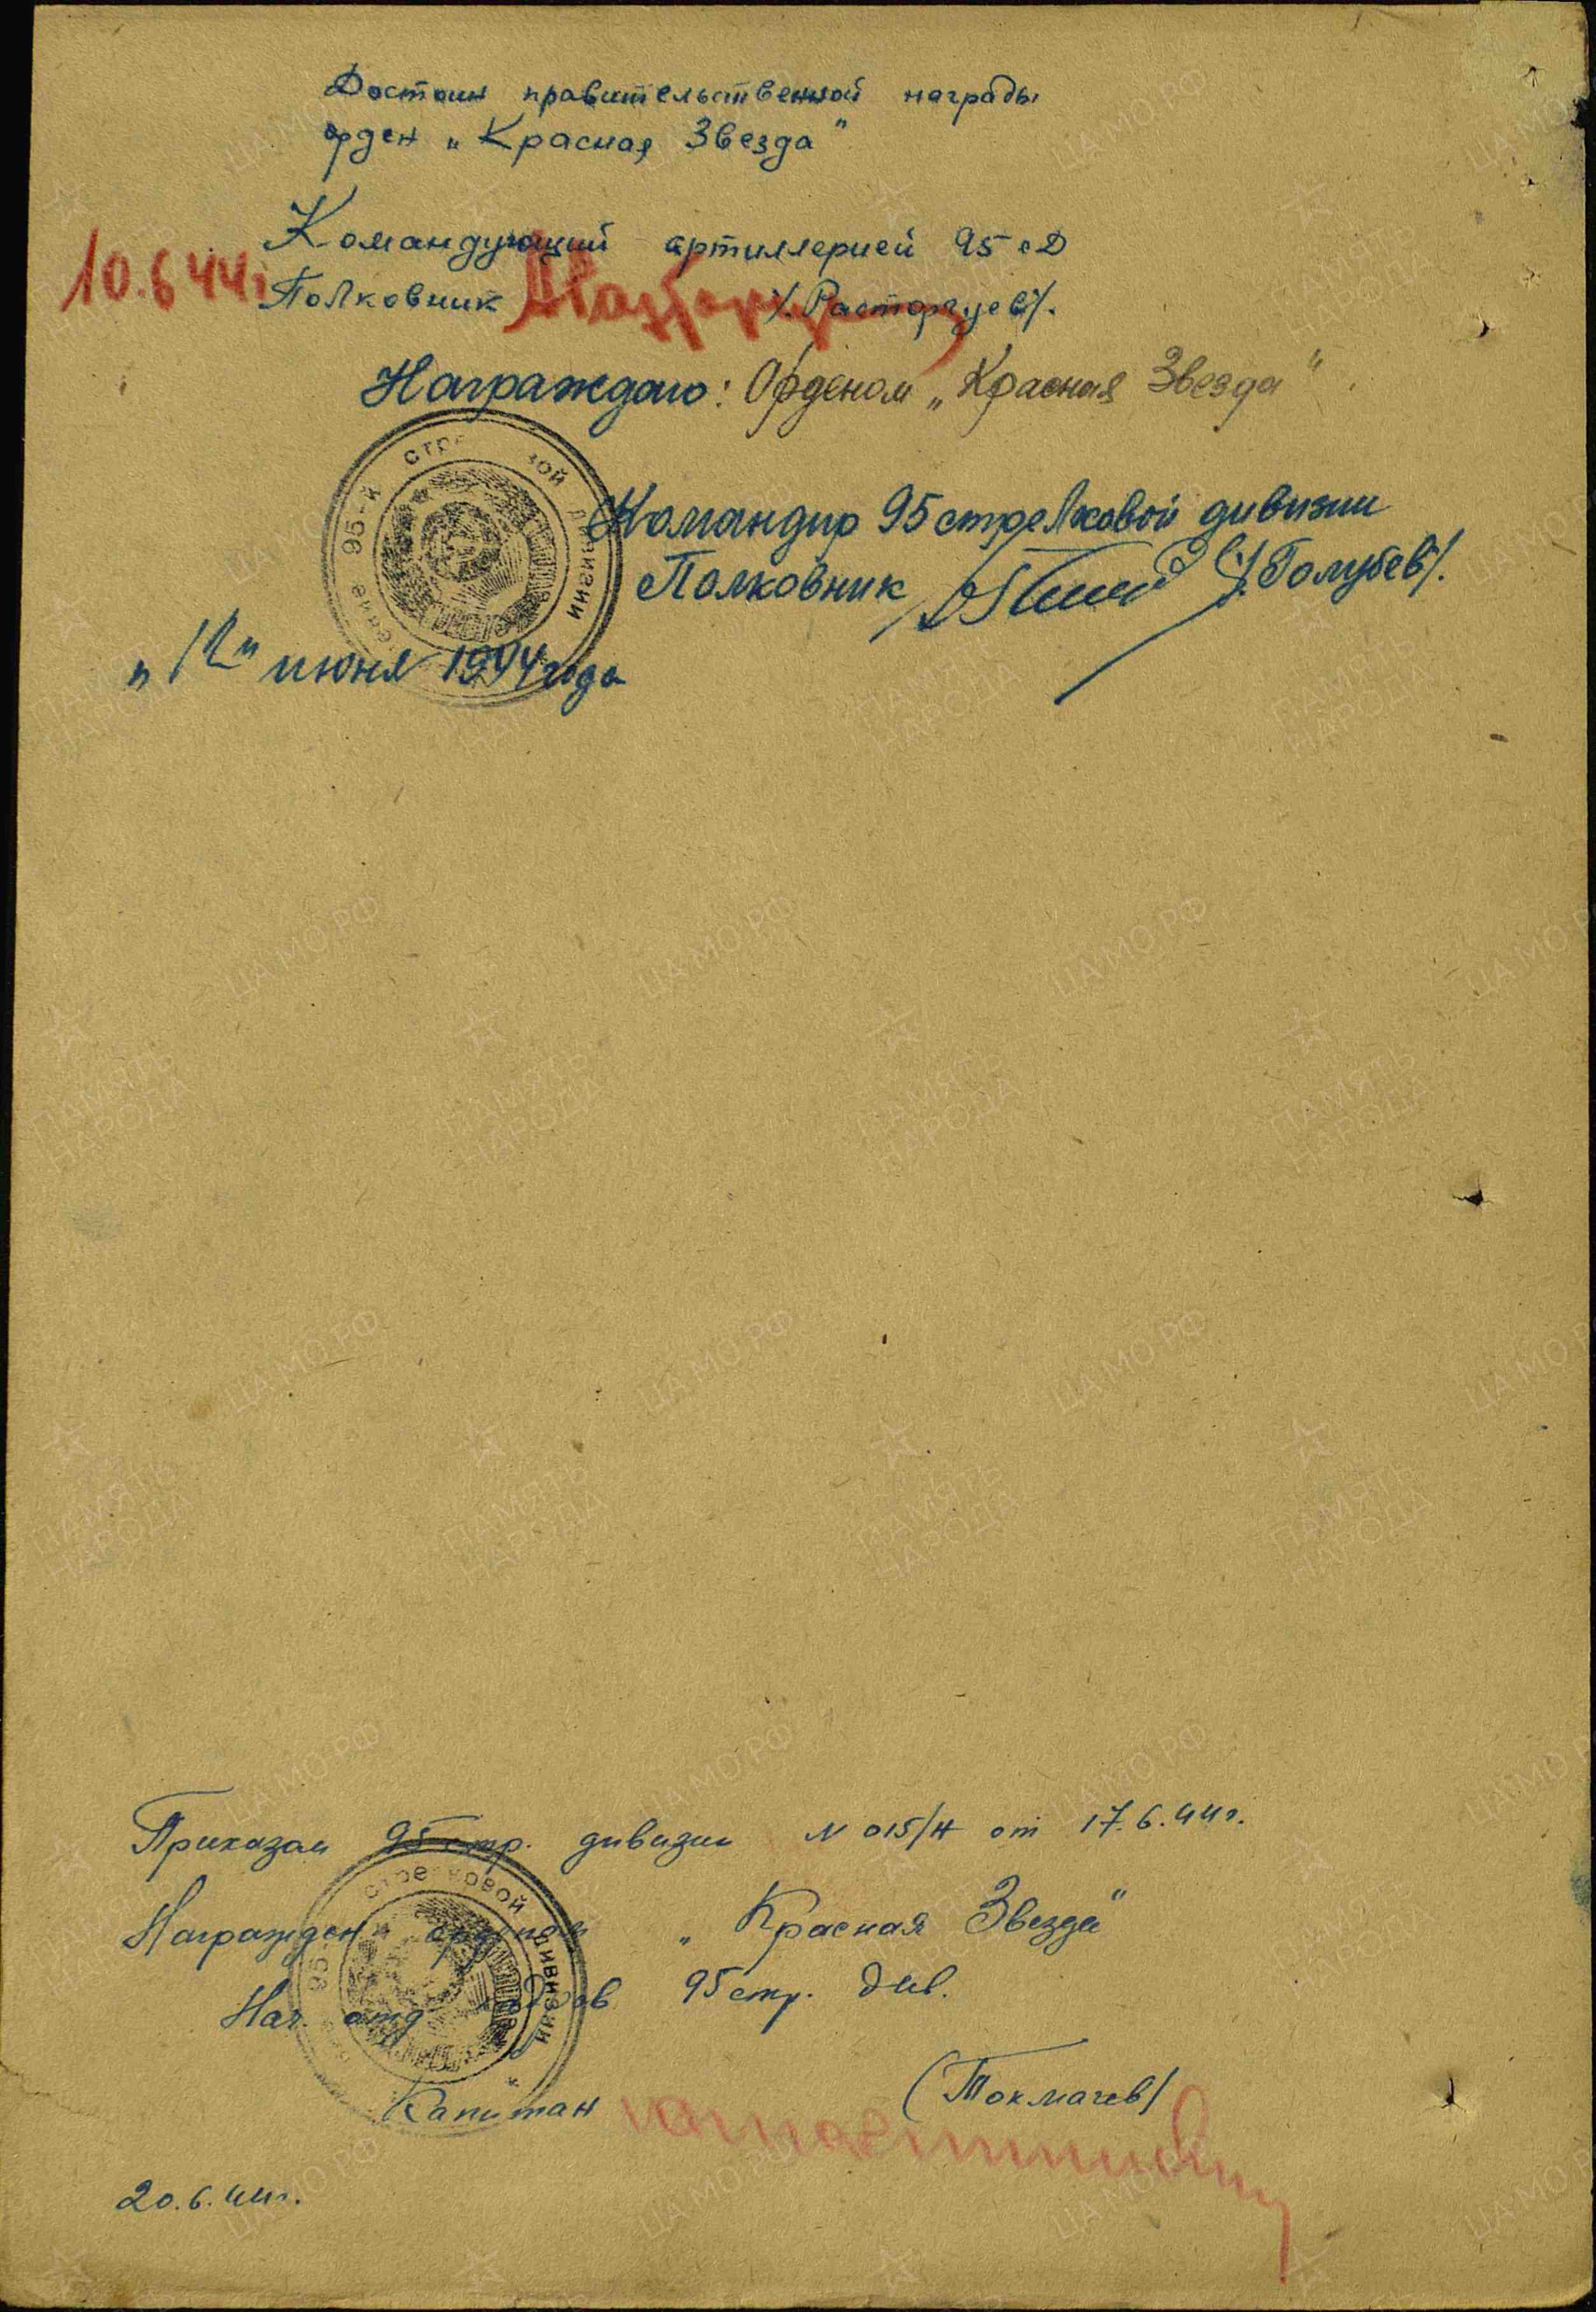 Достоин правительственной награды
орден „Красная Звезда"
Командующий артиллерией 95 сД
10.6 44г Полковник /. Расторгуев /.
Награждаю: Орденом „Красная Звезда".
95-й стр зой дивизии
Командир 95 стрелковой дивизии
Полковник /Голубев/.
„12" июня 1944 года
Приказом 95 стр. дивизии N 015/Н от 17.6.44г.
Награжден орденом „Красная Звезда"
Нач. отд 95 стр. див.
Капитан (Токмачев/
20.6.44г.